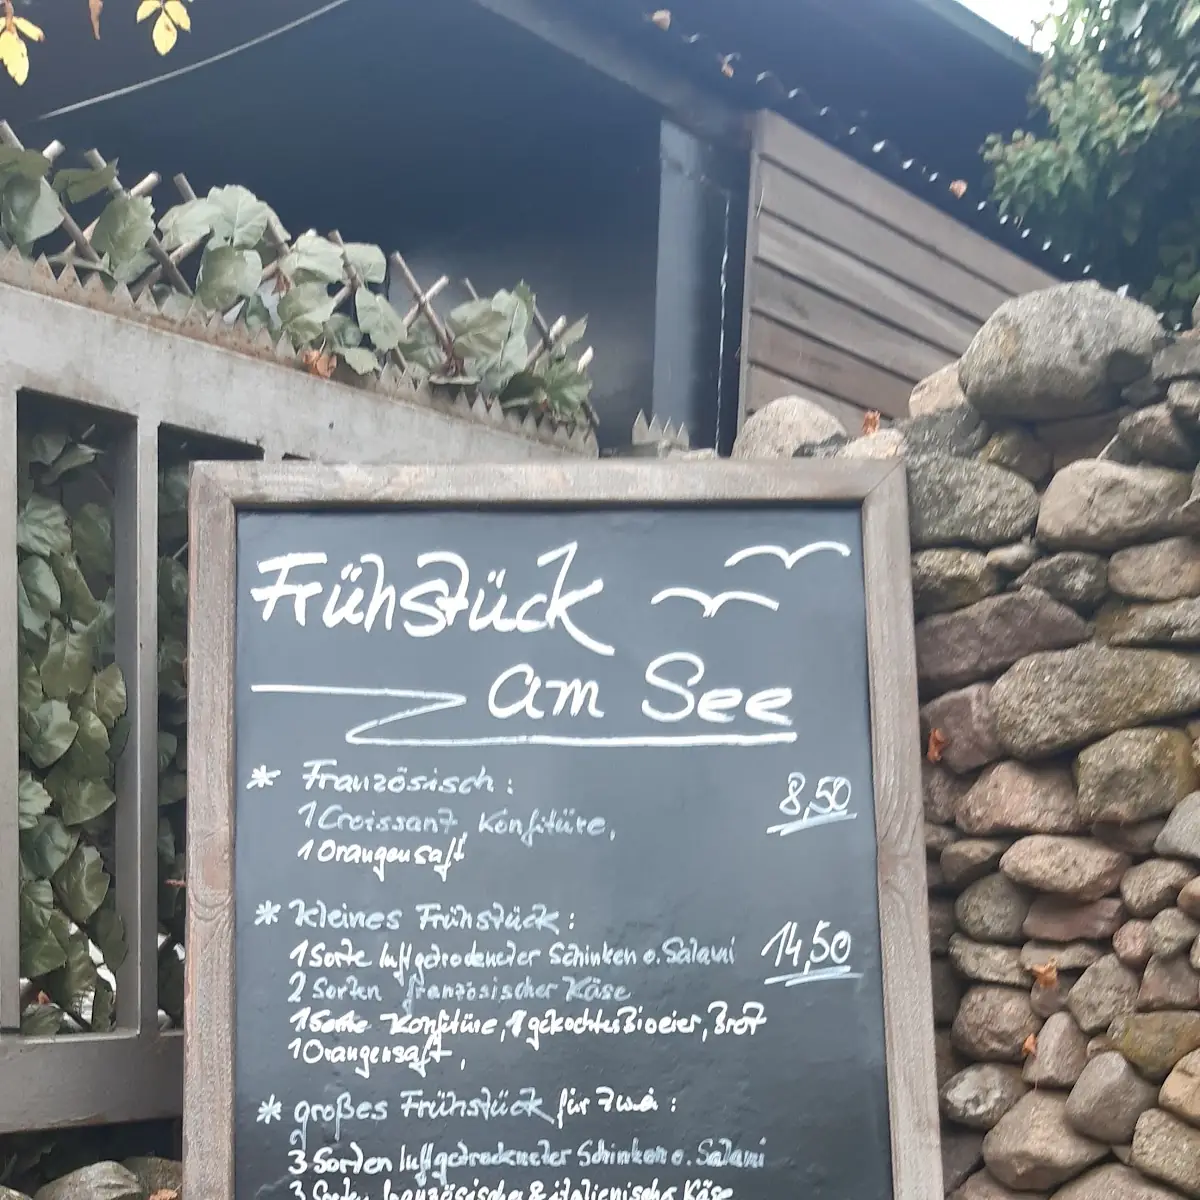 Frühstück
am See
* Französisch: 8,50
1 Croissant, Konfitüre,
1 Orangensaft
* kleines Frühstück:
1 Sorte luftgetrockneter Schinken o. Salami 14,50
2 Sorten französischer Käse
1 Sorte Konfitüre, 1 gekochtes Bioeier, Brot
1 Orangensaft,
* großes Frühstück für zwei:
3 Sorten luftgetrockneter Schinken o. Salami
3 Sorten französische & italienische Käse